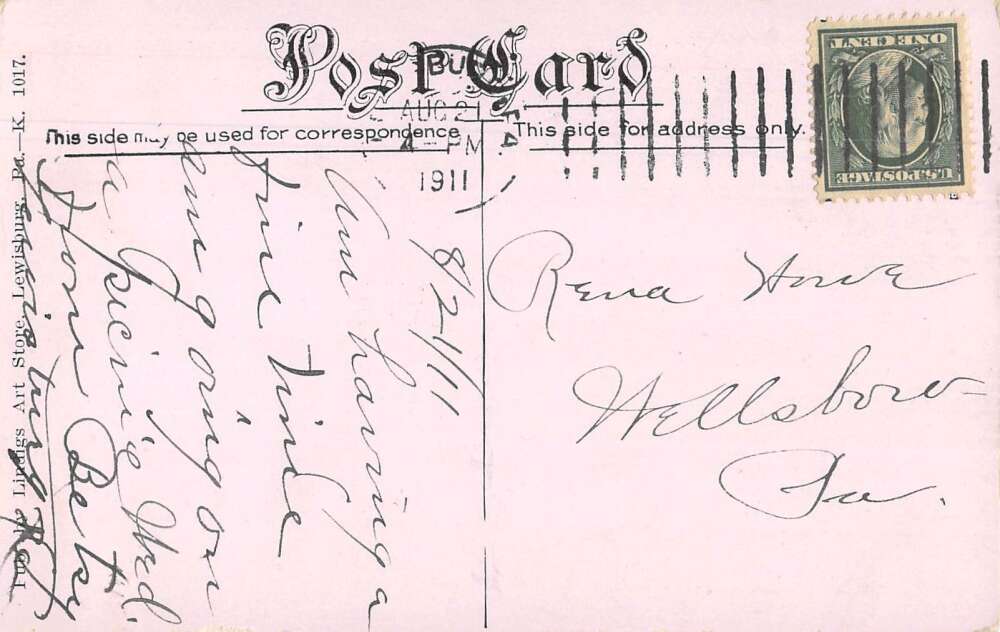 Post Card
BU
AUG 2
4 - PM
1911
PA
This side may be used for correspondence
This side for address only.
U.S. POSTAGE
ONE CENT
8/2/11
Am having a
fine time
am going on
a picnic Wed.
from Betsy
Lewisburg Pa.
Rena Howe
Wellsboro
Pa.
Pub. by Lindigs Art Store, Lewisburg, Pa.—K. 1017.